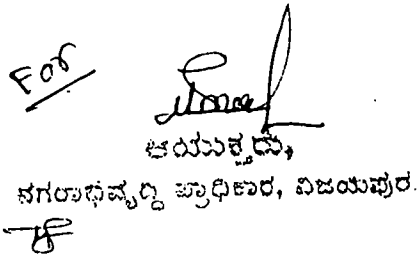 For
ಆಯುಕ್ತರು,
ನಗರಾಭಿವೃದ್ಧಿ ಪ್ರಾಧಿಕಾರ, ವಿಜಯಪುರ.